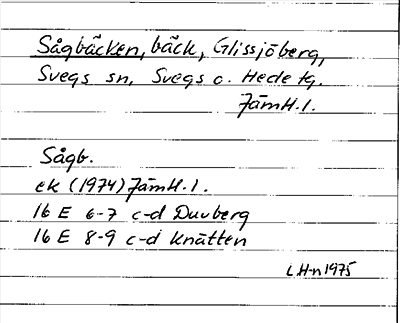 Sågbäcken, bäck, Glissjöberg,
Svegs sn, Svegs o. Hede tg.
Jämtl.l.
Sågb.
ek (1974) Jämtl.l.
16 E 6-7 c-d Duvberg
16 E 8-9 c-d Knätten
LH-n 1975